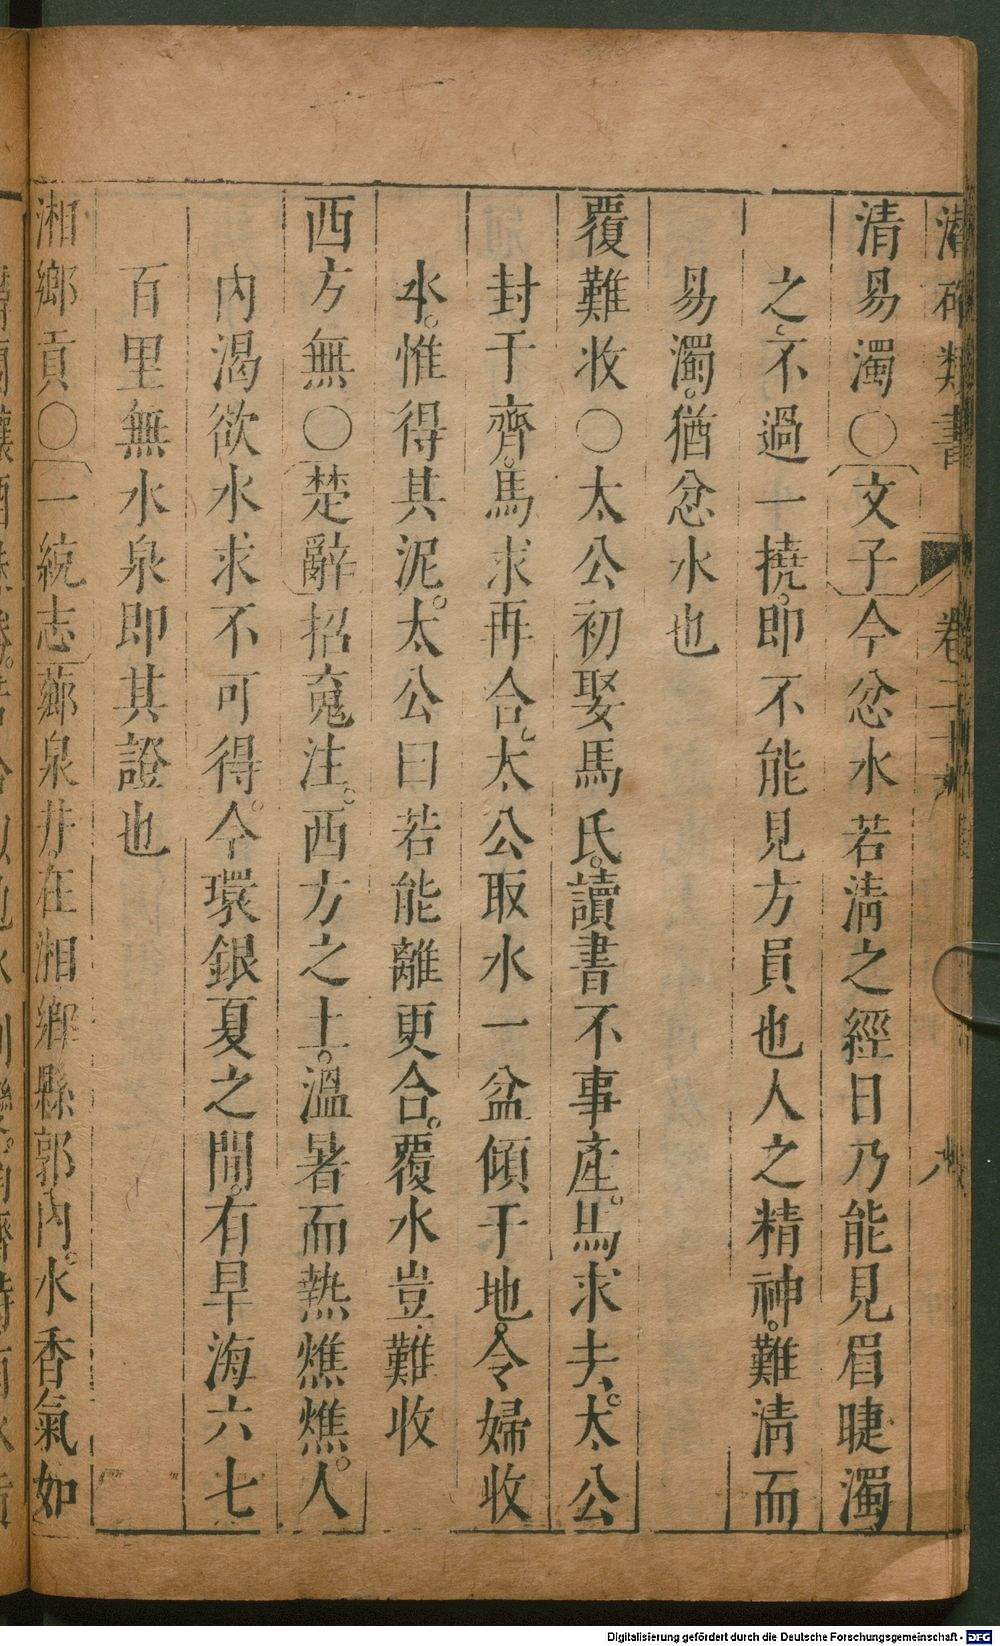 潛確類書 卷二十 八
清易濁〇文子今忿水若清之經日乃能見眉睫濁
之不過一撓。即不能見方員也人之精神。難清而
易濁。猶忿水也
覆難收〇太公初娶馬氏。讀書不事產。馬求去。太公
封于齊。馬求再合。太公取水一盆傾于地。令婦收
水。惟得其泥。太公曰若能離更合。覆水豈難收
西方無〇楚辭招䰟注。西方之土。溫暑而熱燋燋。人
內渴欲水求不可得。今環銀夏之間。有旱海六七
百里無水泉即其證也
湘鄉貢〇一統志薌泉井。在湘鄉縣郭內。水香氣如
Digitalisierung gefördert durch die Deutsche Forschungsgemeinschaft - DFG